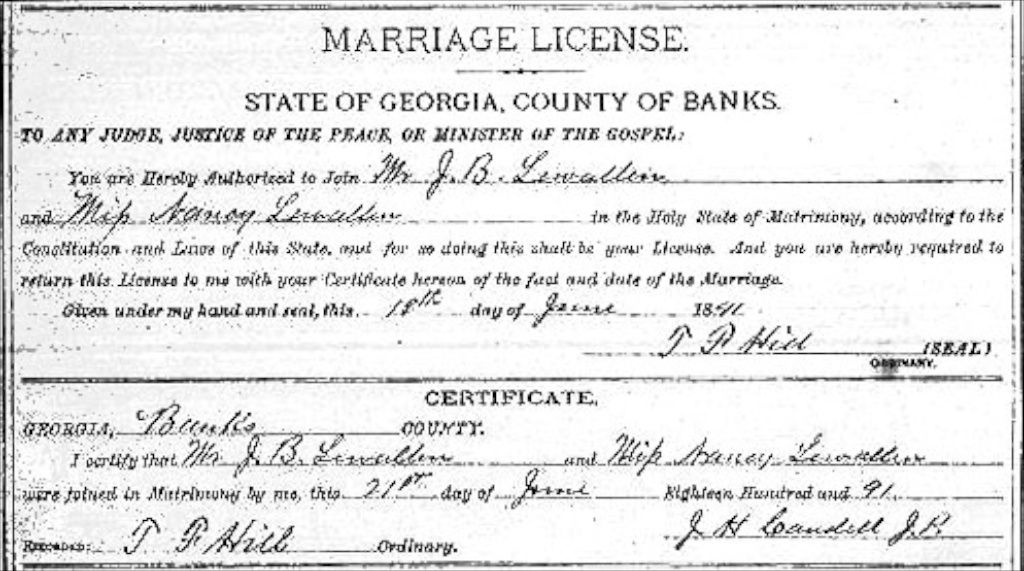 MARRIAGE LICENSE.
STATE OF GEORGIA, COUNTY OF BANKS.
TO ANY JUDGE, JUSTICE OF THE PEACE, OR MINISTER OF THE GOSPEL:
You are Hereby Authorized to Join Mr J. B. Lewallen
and Miss Nancy Lewallen in the Holy State of Matrimony, according to the
Constitution and Laws of this State, and for so doing this shall be your License. And you are hereby required to
return this License to me with your Certificate hereon of the fact and date of the Marriage.
Given under my hand and seal, this 18th day of June 1891
T P Hill (SEAL)
ORDINARY.
CERTIFICATE.
GEORGIA, Banks COUNTY.
I certify that Mr J. B. Lewallen and Miss Nancy Lewallen
were joined in Matrimony by me, this 21st day of June Eighteen Hundred and 91
J H J.P.
Recorded T P Hill Ordinary.